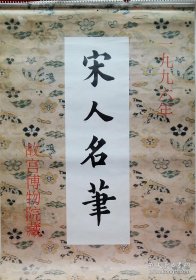 一九九六年
宋人名筆
故宮博物院藏